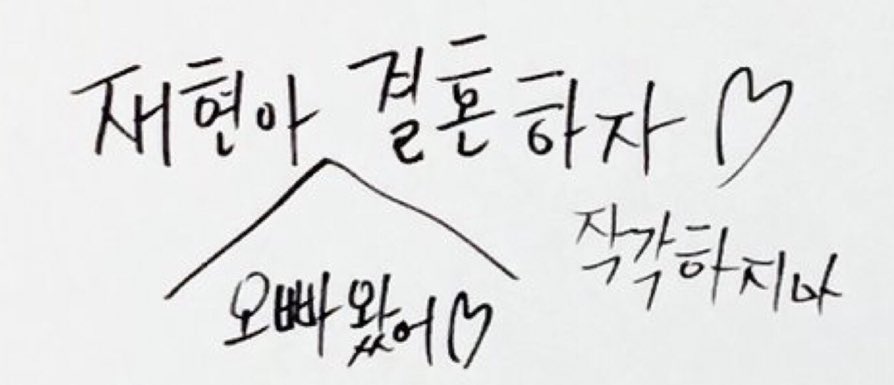 재현아 결혼하자♡
작각하지마
오빠 왔어♡